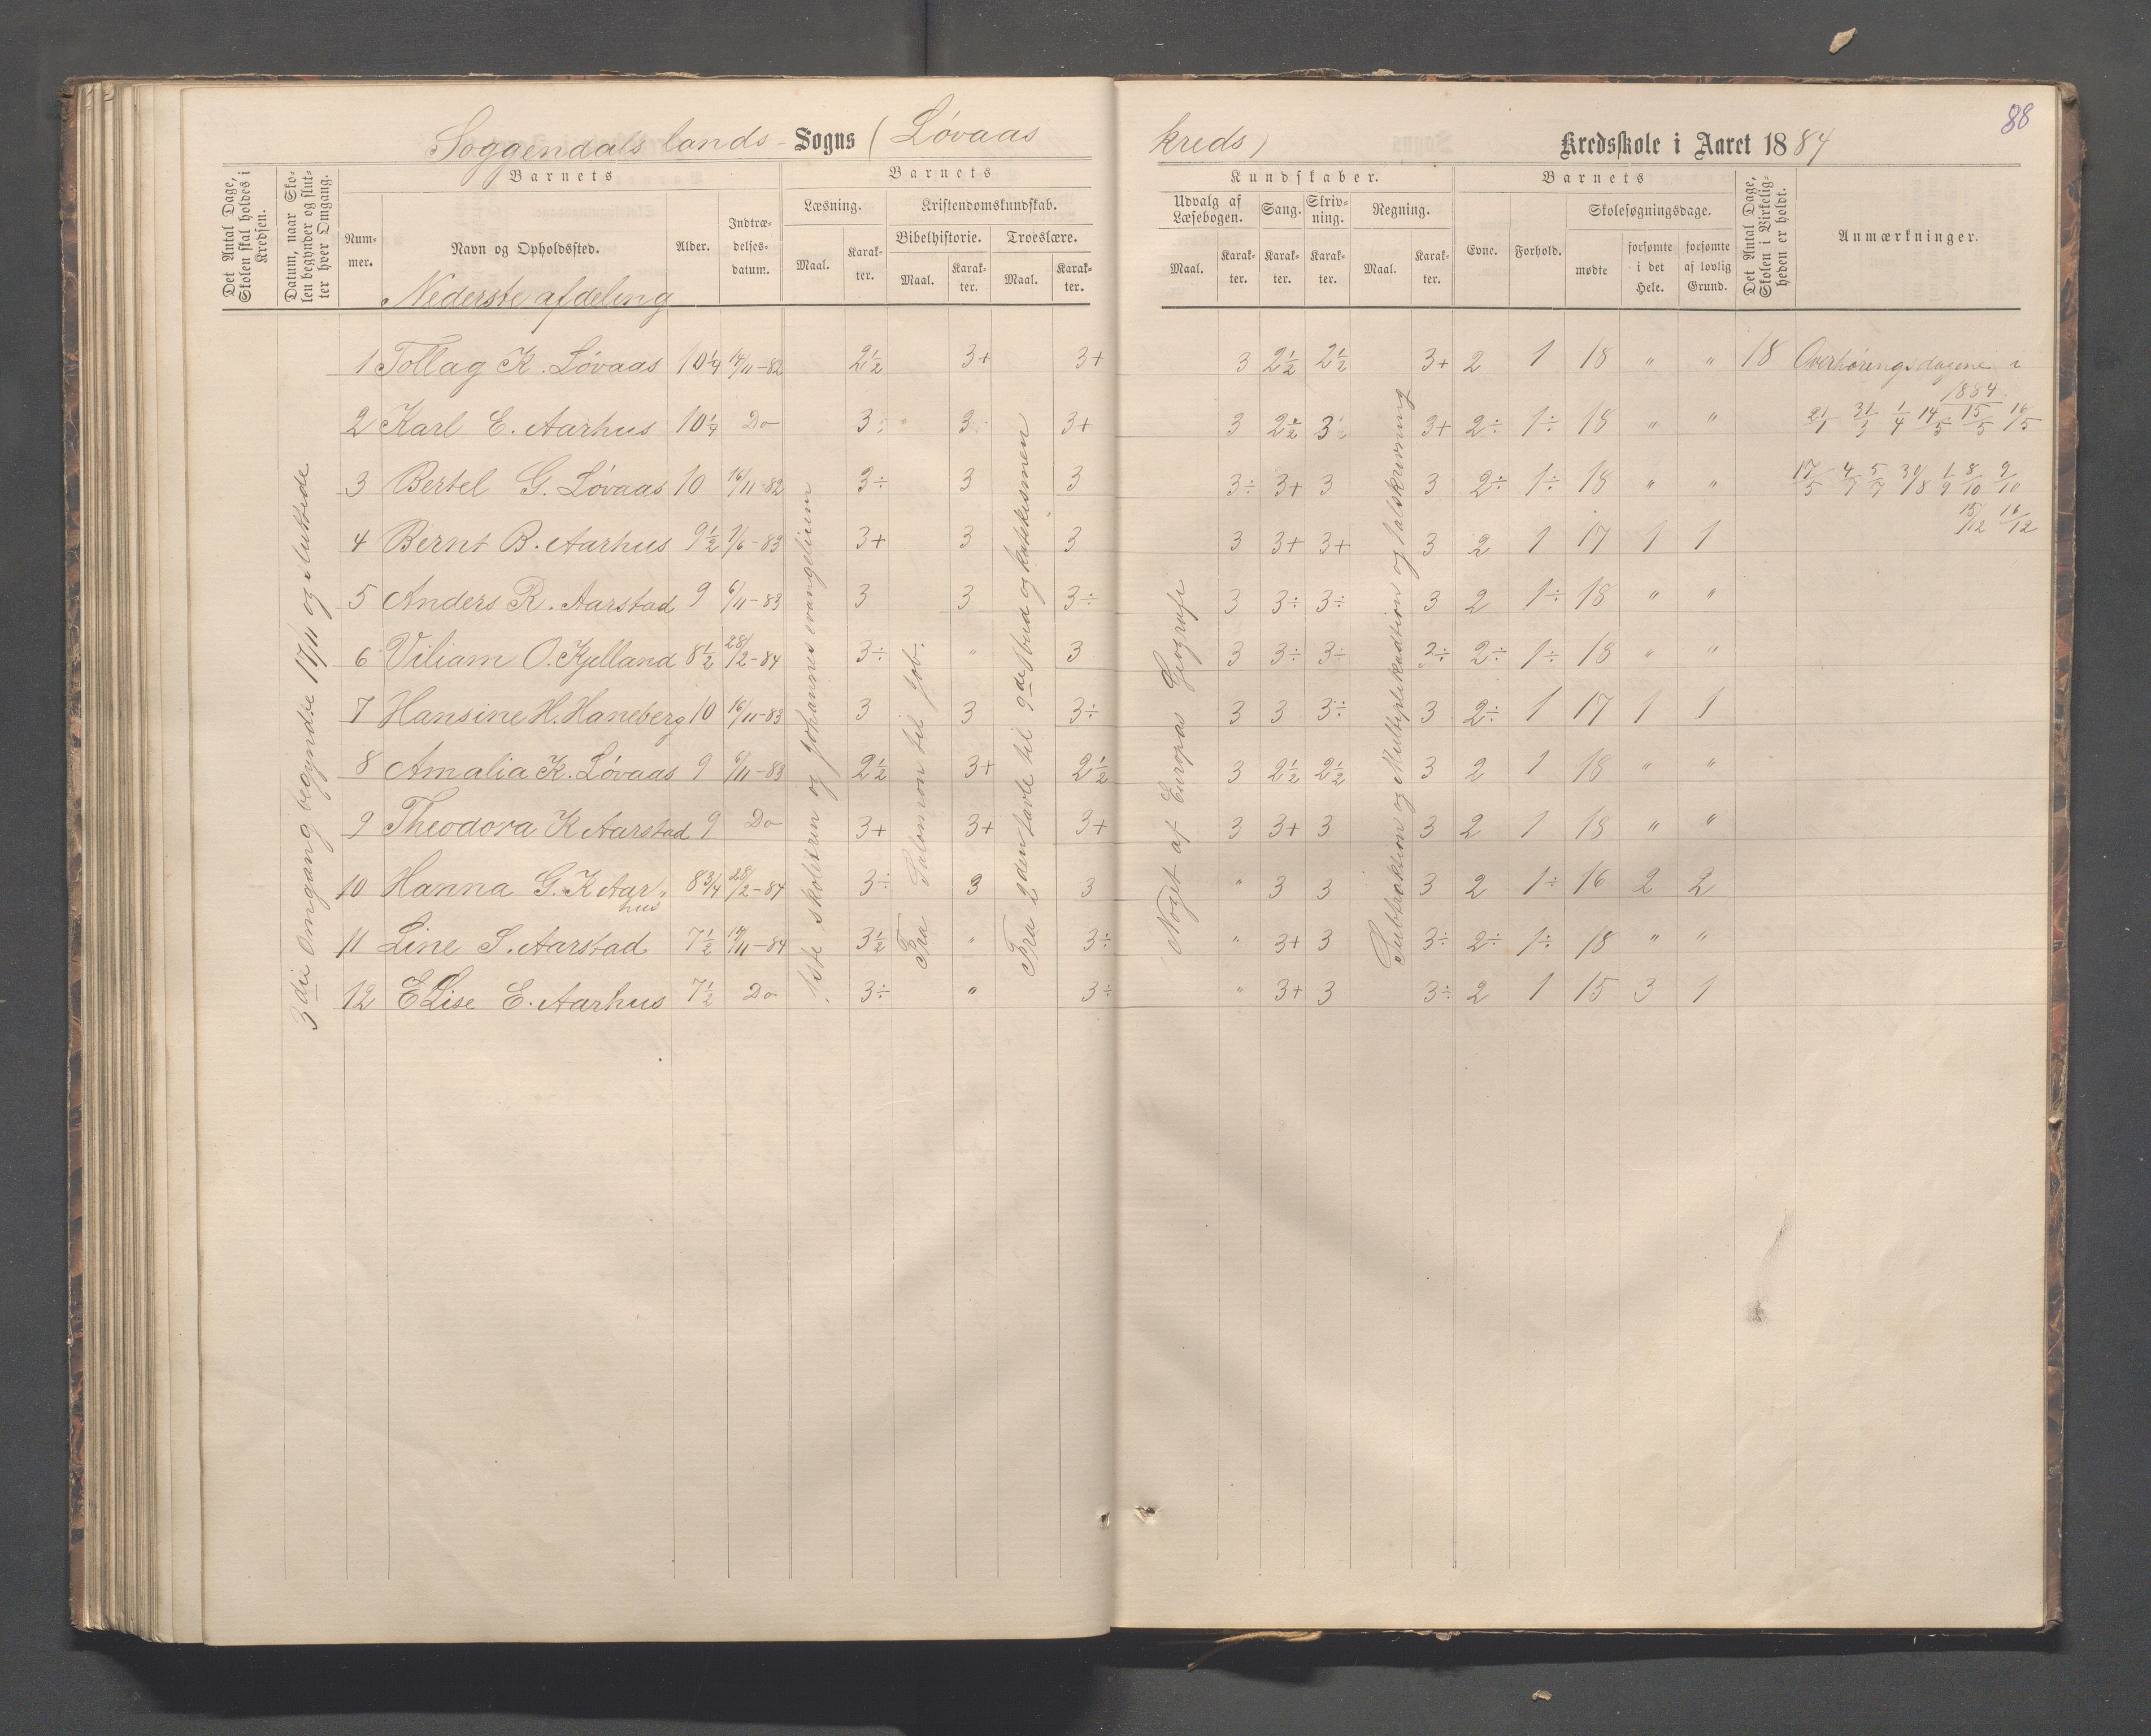 88
Soggendals lands- Sogns (Løvaas kreds) Kredsskole i Aaret 1884
Det Antal Dage, Skolen skal holdes i Kredsen.
Datum, naar Skolen begynder og slutter hver Omgang.
Barnets
Nummer.
Navn og Opholdssted.
Alder.
Indtrædelsesdatum.
Barnets
Læsning.
Maal.
Karakter.
Kristendomskundskab.
Bibelhistorie.
Maal.
Karakter.
Troeslære.
Maal.
Karakter.
Kundskaber.
Udvalg af Læsebogen.
Maal.
Karakter.
Sang.
Karakter.
Skrivning.
Karakter.
Regning.
Maal.
Karakter.
Barnets
Evne.
Forhold.
Skolesøgningsdage.
mødte
forsømte i det Hele.
forsømte af lovlig Grund.
Det Antal Dage, Skolen i Virkeligheden er holdt.
Anmærkninger.
Nederste afdeling
3die Omgang begyndte 17/11 og sluttede
1ste skoletrin og Johannes evangelium
Fra Salomon til Job.
Fra 2den tavle til 9de bud og katekismen
Noget af Europas Geografi
Subtraktion og Multiplikadtion og talskrivning
1 Tollag K. Løvaas 10 1/4 14/11-82 2 1/2 3+ 3+ 3 2 1/2 2 1/2 3+ 2 1 18 " " 18 Overhøringsdagene i
1884
2 Karl E. Aarhus 10 1/4 Do 3÷ 3 3+ 3 2 1/2 3 3+ 2÷ 1÷ 18 " " 21/1 31/3 1/4 14/5 15/5 16/5
3 Bertel G. Løvaas 10 16/11-82 3÷ 3 3 3÷ 3+ 3 3 2÷ 1÷ 18 " " 17/5 4/7 5/7 30/8 1/9 8/10 9/10
15/12 16/12
4 Bernt B. Aarhus 9 1/2 7/6-83 3+ 3 3 3 3+ 3+ 3 2 1 17 1 1
5 Anders R. Aarstad 9 6/11-83 3 3 3÷ 3 3÷ 3÷ 3 2 1÷ 18 " "
6 Viliam O. Kjelland 8 1/2 28/2-84 3÷ " 3 3 3÷ 3÷ 3÷ 2÷ 1÷ 18 " "
7 Hansine H. Haneberg 10 16/11-83 3 3 3÷ 3 3 3÷ 3 2÷ 1 17 1 1
8 Amalia K. Løvaas 9 6/11-83 2 1/2 3+ 2 1/2 3 2 1/2 2 1/2 3 2 1 18 " "
9 Theodora K Aarstad 9 Do 3+ 3+ 3+ 3 3+ 3 3 2 1 18 " "
10 Hanna G. K Aarhus 8 3/4 28/2-84 3÷ 3 3 " 3 3 3 2 1÷ 16 2 2
11 Line S. Aarstad 7 1/2 17/11-84 3 1/2 " 3÷ " 3+ 3 3÷ 2÷ 1÷ 18 " "
12 ELise E. Aarhus 7 1/2 Do 3÷ " 3÷ " 3+ 3 3÷ 2 1 15 3 1